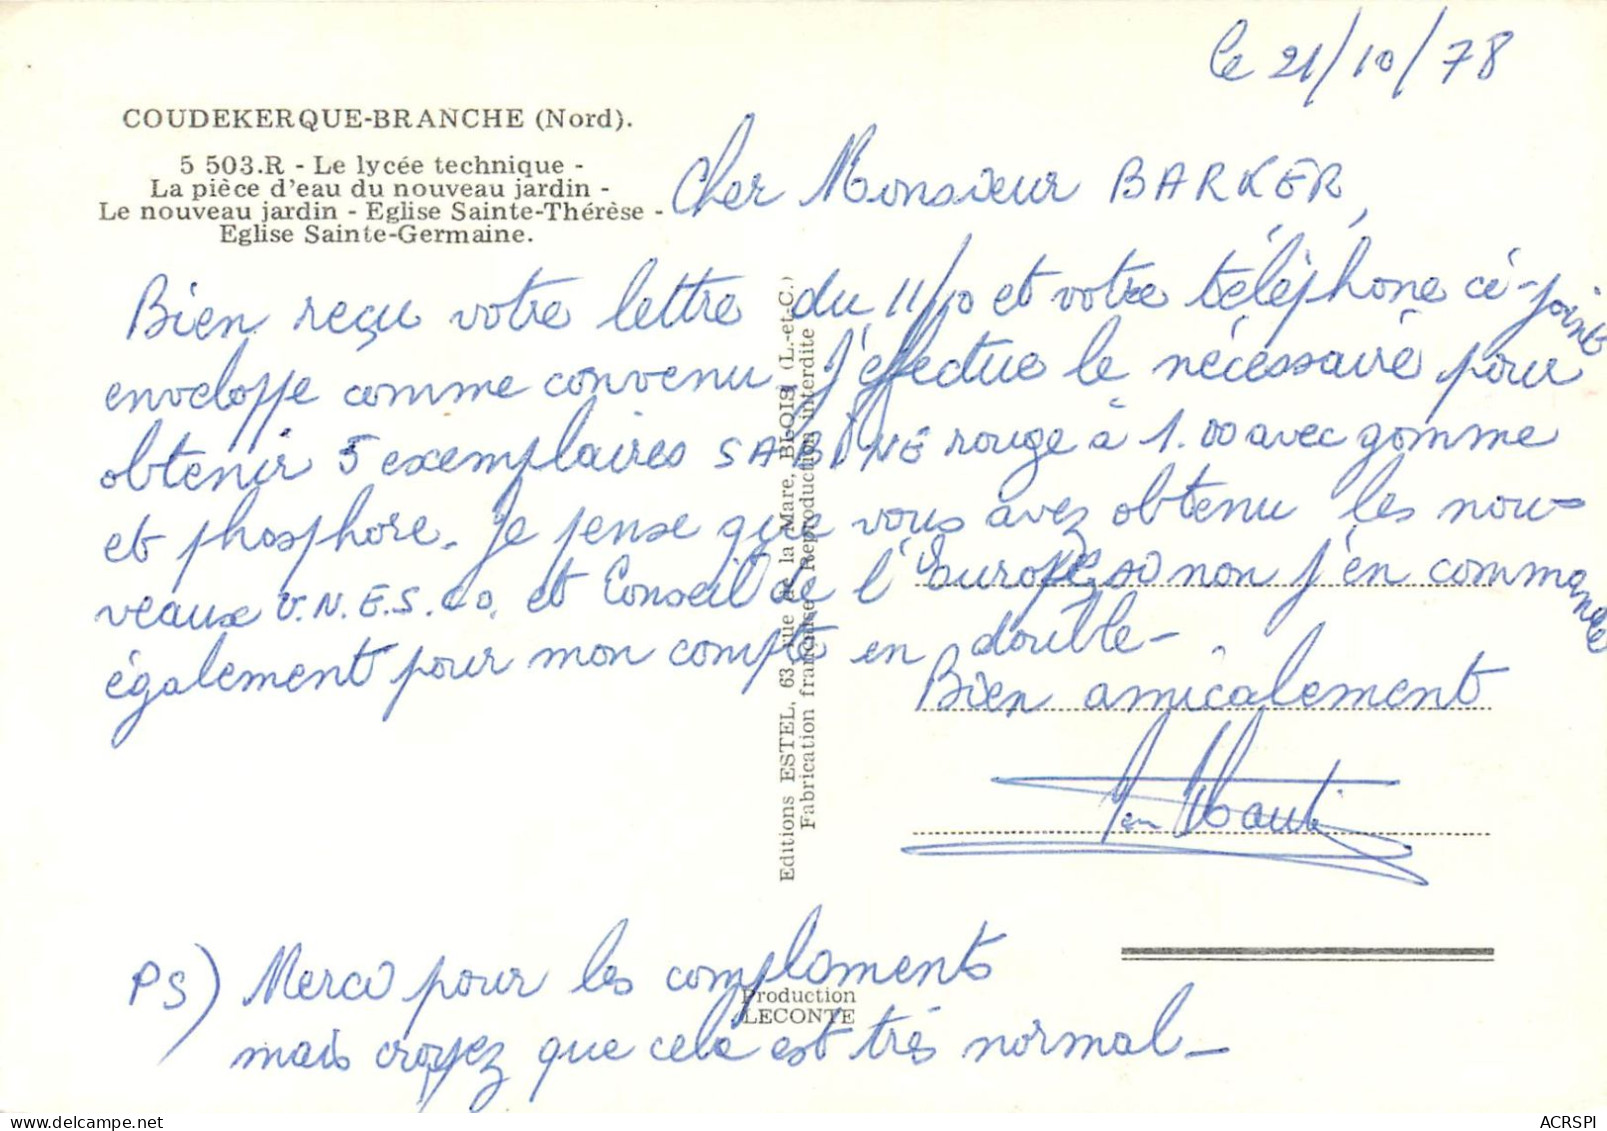 le 21/10/78
COUDEKERQUE-BRANCHE (Nord).
5 503.R - Le lycée technique -
La pièce d'eau du nouveau jardin -
Le nouveau jardin - Eglise Sainte-Thérèse -
Eglise Sainte-Germaine.
Cher Monsieur BARKER,
Bien reçu votre lettre du 11/10 et votre téléphone ci-joint
enveloppe comme convenu. J'effectue le nécessaire pour
obtenir 5 exemplaires SABINE rouge à 1.00 avec gomme
et phosphore. Je pense que vous avez obtenu les nou-
veaux U.N.E.S.CO. et Conseil de l'Europe so non j'en commande
également pour mon compte en double-.
Bien amicalement
Editions ESTEL, 63, rue de la Mare, BLOIS (L.-et-C.)
Fabrication française Reproduction interdite
PS) Merci pour les compliments
mais croyez que cela est très normal-
Production
LECONTE
ACRSPI